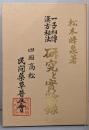 松本峰泉著
一子相傳
漢方秘法
研究と實験録
四国高松
民間薬草普及会